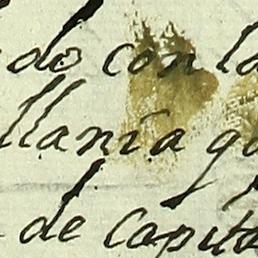 do con la
llania q
de capita